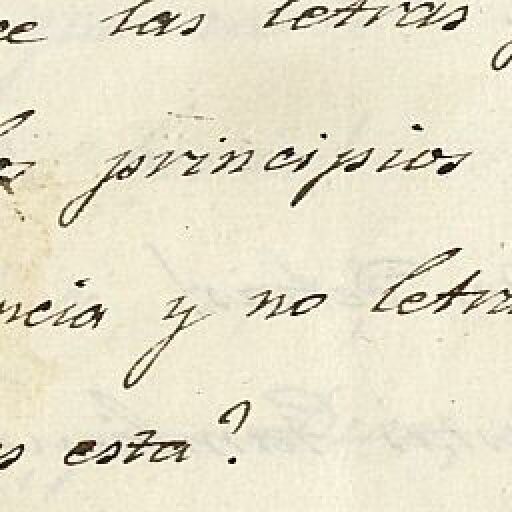 las letras
principios
ncia y no letra
s esta?